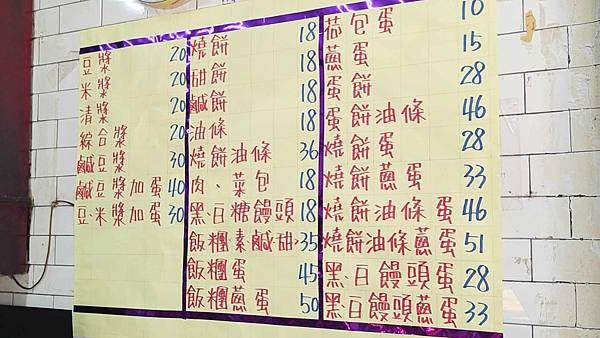 豆漿 20
米漿 20
清漿 20
綜合漿 20
鹹豆漿 30
鹹豆漿加蛋 40
豆、米漿加蛋 30
燒餅 18
甜餅 18
鹹餅 18
油條 18
燒餅油條 36
肉、菜包 18
黑白糖饅頭 18
飯糰素鹹甜 35
飯糰蛋 45
飯糰蔥蛋 50
荷包蛋 10
蔥蛋 15
蛋餅 28
蛋餅油條 46
燒餅蛋 28
燒餅蔥蛋 33
燒餅油條蛋 46
燒餅油條蔥蛋 51
黑白饅頭蛋 28
黑白饅頭蔥蛋 33